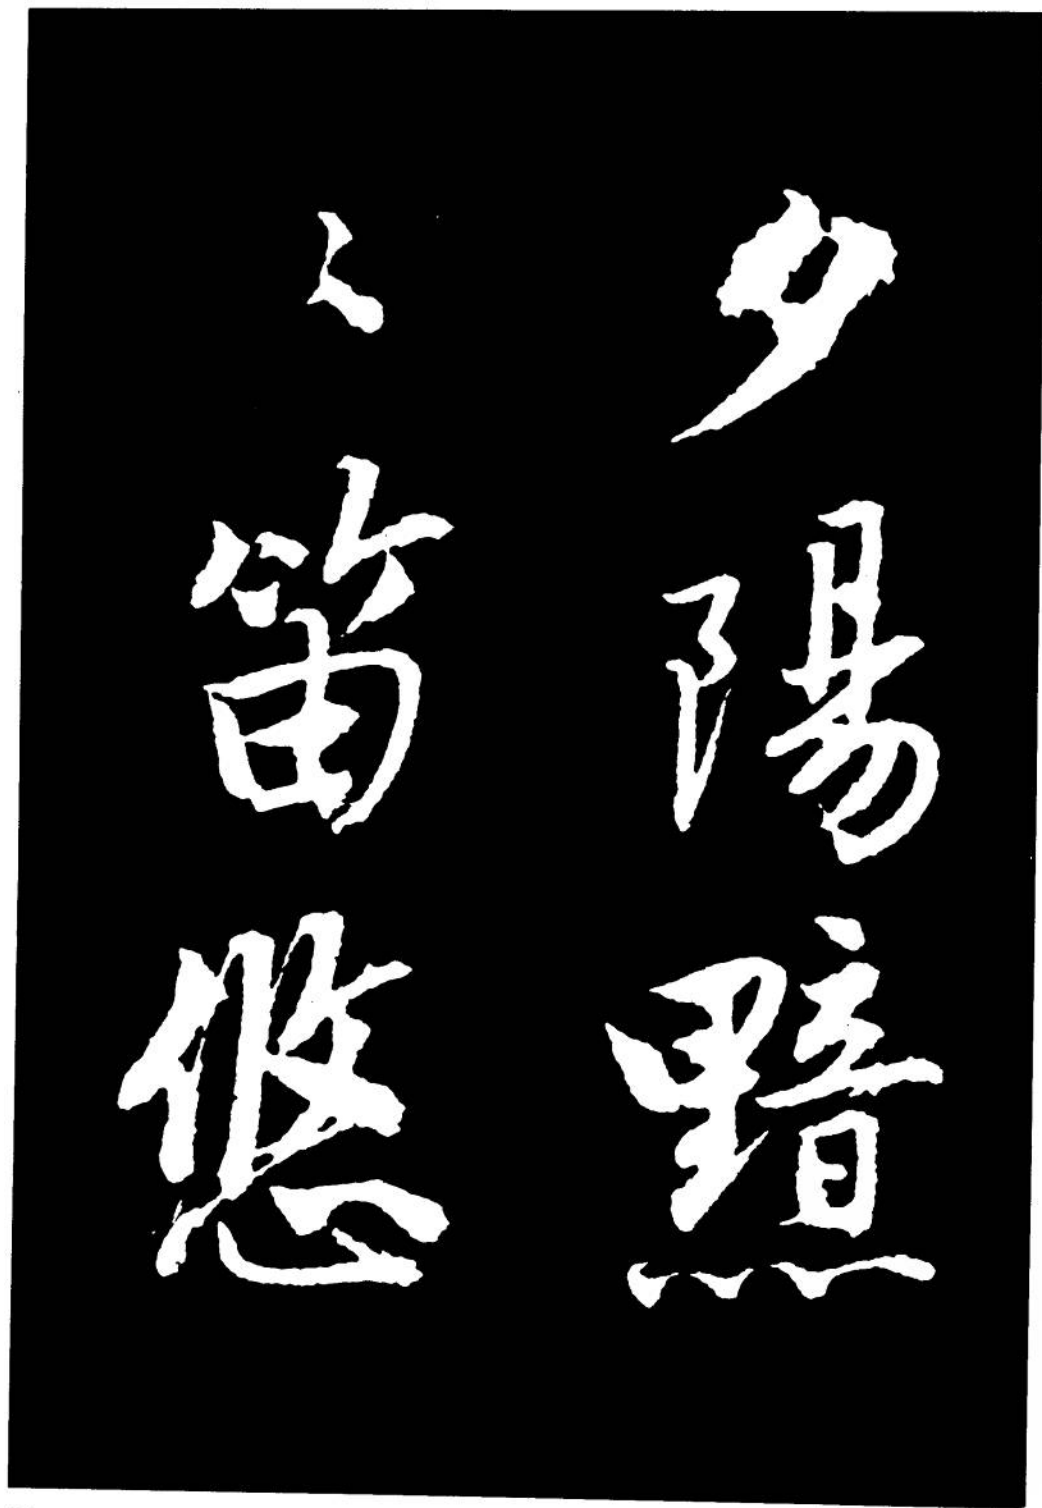 夕陽黯
〻笛悠